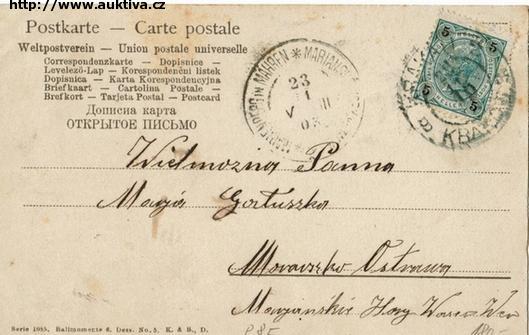 http://www.auktiva.cz
Postkarte — Carte postale
Weltpostverein — Union postale universelle
Correspondenzkarte — Dopisnice
Levelező-Lap — Korespondenční lístek
Dopisnica — Karta Korespondencyjna
Briefkaart — Cartolina Postale
Brefkort — Tarjeta Postal — Postcard
Дописна карта
ОТКРЫТОЕ ПИСЬМО
5 5
5 5
MÄHREN
23
03
KRA
Wielmożna Panna
Marya Gartuszka
Morawsko Ostrawa
Maryańskie Hory
Serie 1085. Ballmomente 6. Dess. No. 5. K. & B., D.